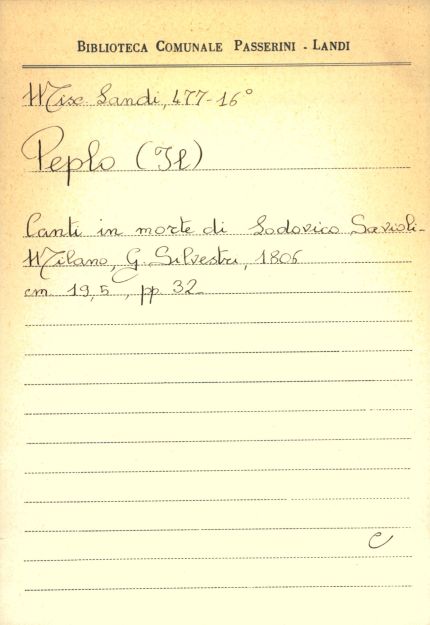 BIBLIOTECA COMUNALE PASSERINI - LANDI
Misc. Landi, 477-16°
Peplo (Il)
Canti in morte di Lodovico Savioli-
Milano, G. Silvestri, 1806
cm. 19,5, pp. 32-
C